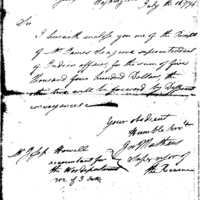 July the 16, 1794
Sir
I herewith enclose you me of the Receipt
of Mr. James Seagrove superintendent
of Indian affairs, for the sum of five
Thousand four hundred Dollars, the
other two will be forward by Different
conveyances
Your obedient
Humble Servt.
Jno Mathews
Supervisor of
the Revenue
Mr. Joseph Howell
accountant for
the War department